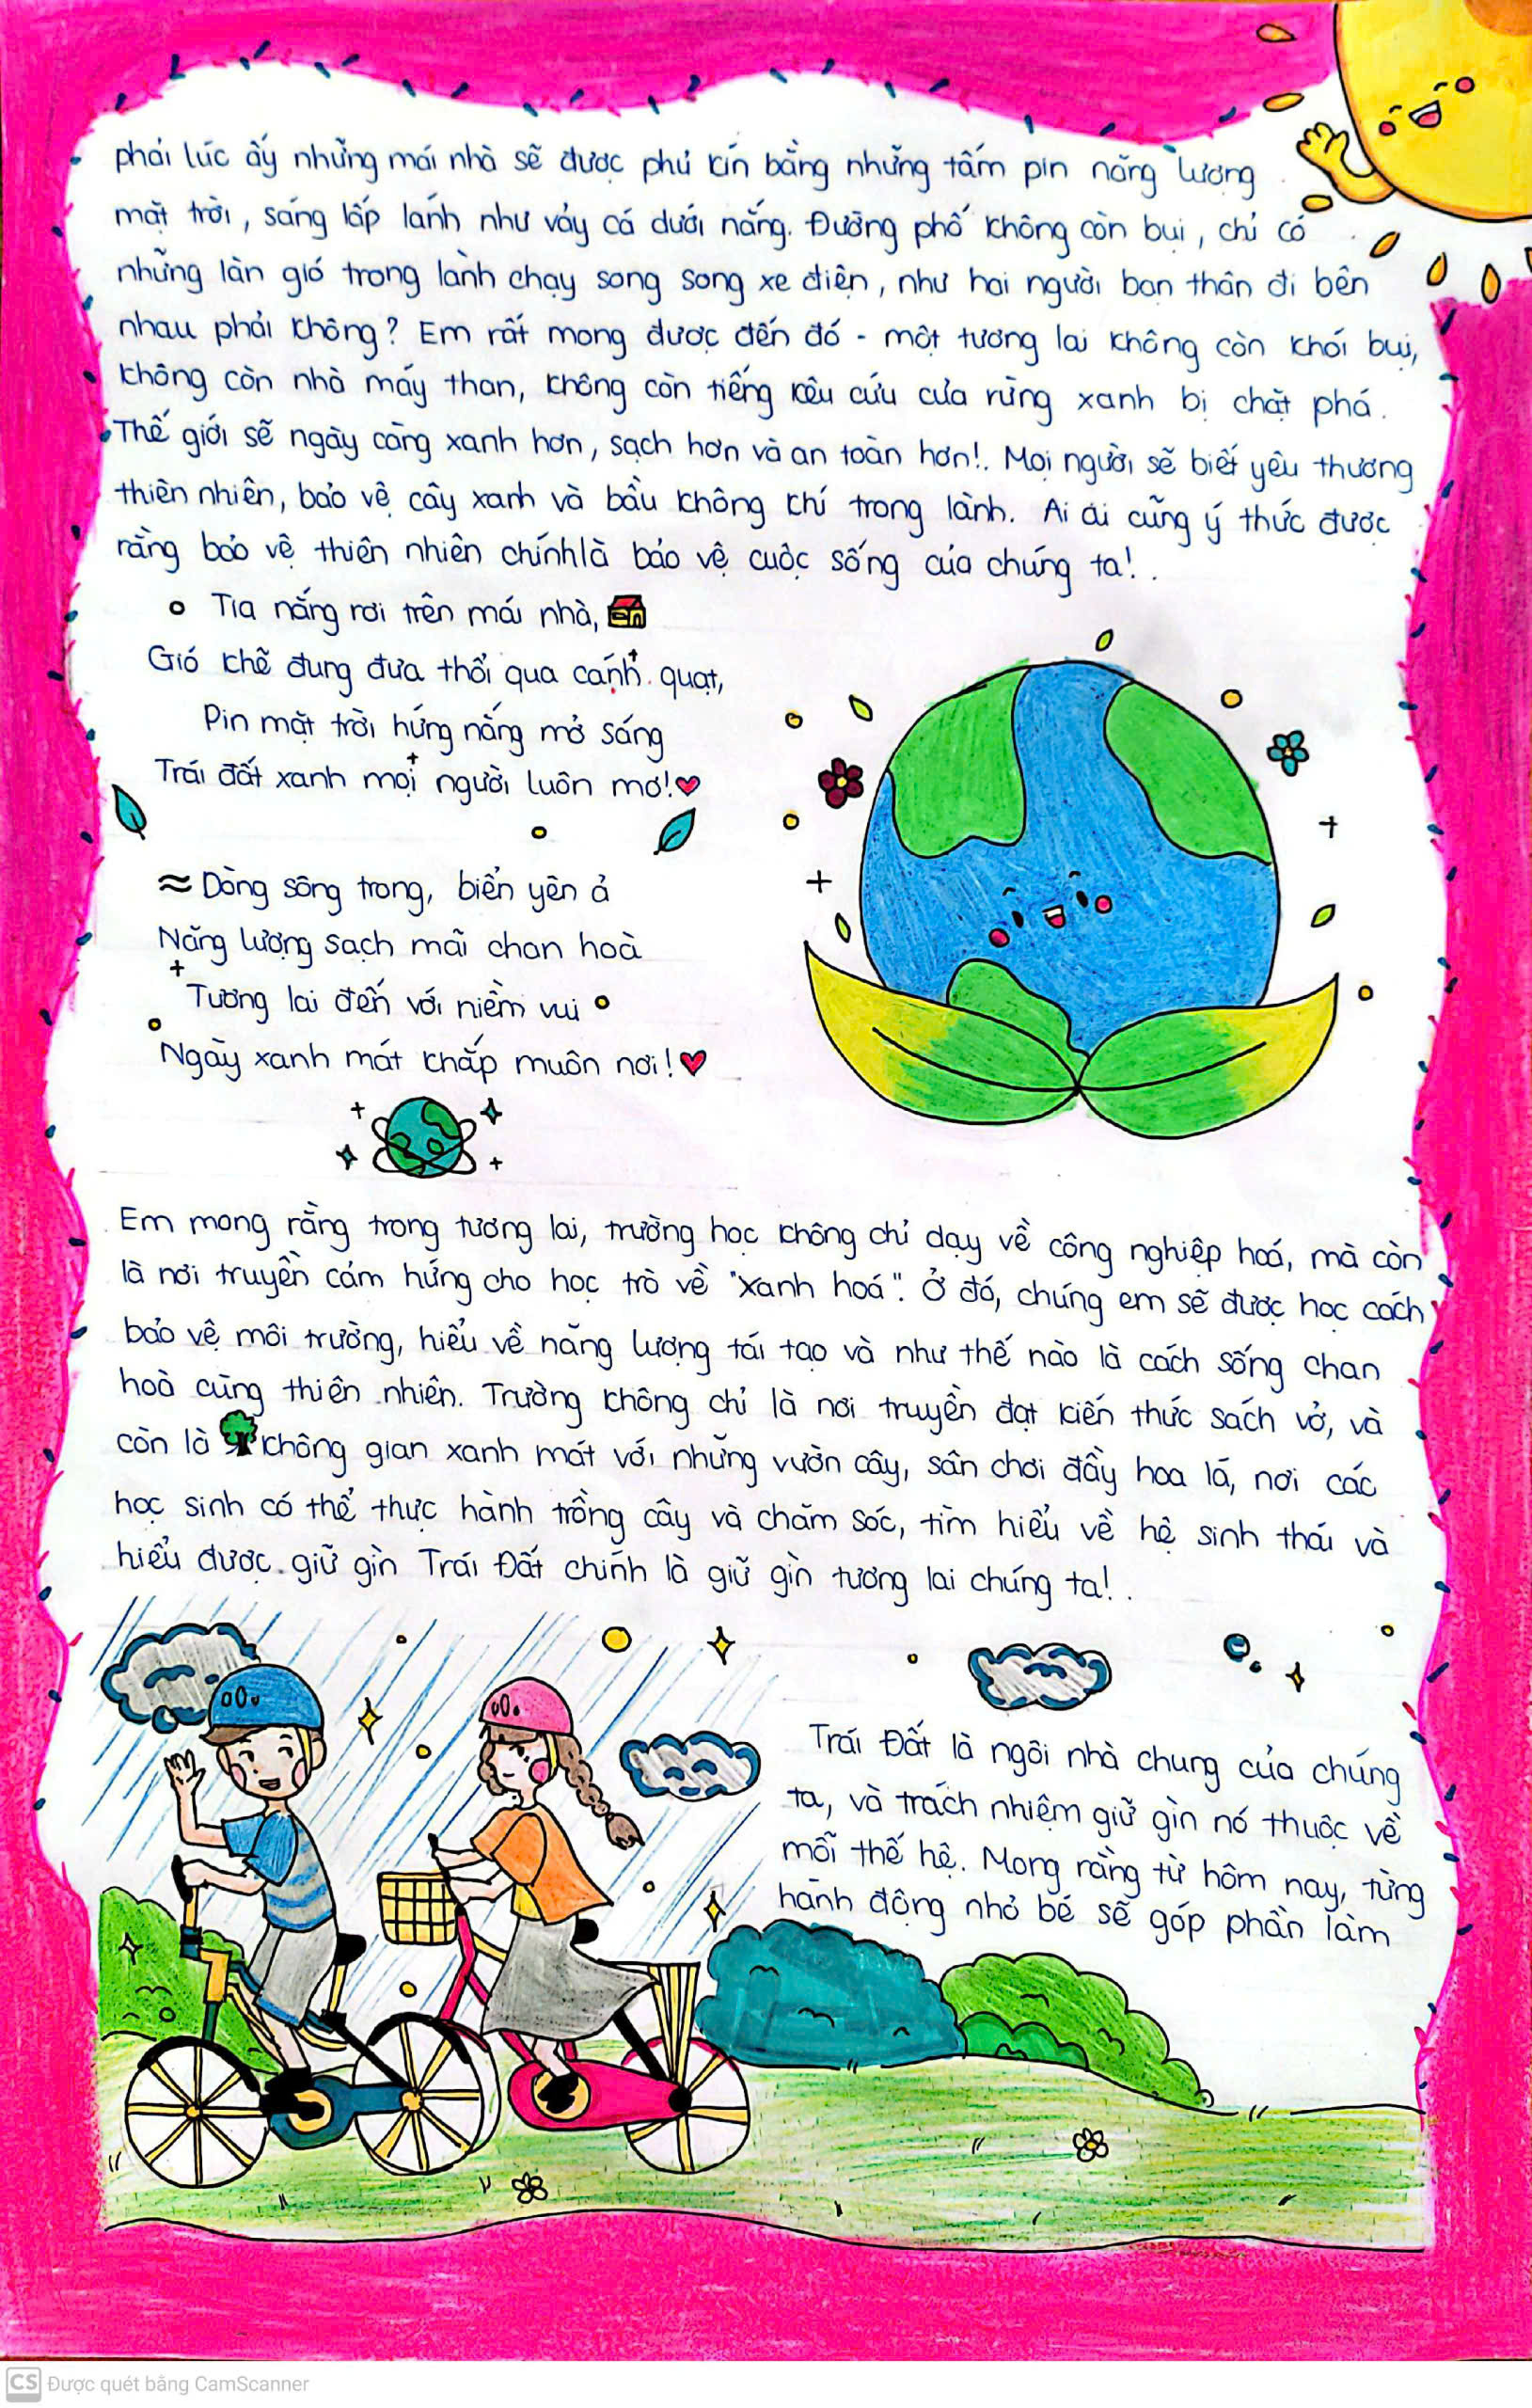 phải lúc ấy những mái nhà sẽ được phủ kín bằng những tấm pin năng lượng
mặt trời, sáng lấp lánh như vảy cá dưới nắng. Đường phố không còn bụi, chỉ có
những làn gió trong lành chạy song song xe điện, như hai người bạn thân đi bên
nhau phải không? Em rất mong được đến đó - một tương lai không còn khói bụi,
không còn nhà máy than, không còn tiếng kêu cứu của rừng xanh bị chặt phá.
Thế giới sẽ ngày càng xanh hơn, sạch hơn và an toàn hơn!. Mọi người sẽ biết yêu thương
thiên nhiên, bảo vệ cây xanh và bầu không khí trong lành. Ai ai cũng ý thức được
rằng bảo vệ thiên nhiên chính là bảo vệ cuộc sống của chúng ta!.
Tia nắng rơi trên mái nhà,
Gió khẽ đung đưa thổi qua cánh quạt,
Pin mặt trời hứng nắng mở sáng
Trái đất xanh mọi người luôn mơ!
Dòng sông trong, biển yên ả
Năng lượng sạch mãi chan hoà
Tương lai đến với niềm vui
Ngày xanh mát khắp muôn nơi!
Em mong rằng trong tương lai, trường học không chỉ dạy về công nghiệp hoá, mà còn
là nơi truyền cảm hứng cho học trò về "xanh hoá". Ở đó, chúng em sẽ được học cách
bảo vệ môi trường, hiểu về năng lượng tái tạo và như thế nào là cách sống chan
hoà cùng thiên nhiên. Trường không chỉ là nơi truyền đạt kiến thức sách vở, và
còn là không gian xanh mát với những vườn cây, sân chơi đầy hoa lá, nơi các
học sinh có thể thực hành trồng cây và chăm sóc, tìm hiểu về hệ sinh thái và
hiểu được giữ gìn Trái Đất chính là giữ gìn tương lai chúng ta!.
Trái Đất là ngôi nhà chung của chúng
ta, và trách nhiệm giữ gìn nó thuộc về
mỗi thế hệ. Mong rằng từ hôm nay, từng
hành động nhỏ bé sẽ góp phần làm
CS Được quét bằng CamScanner